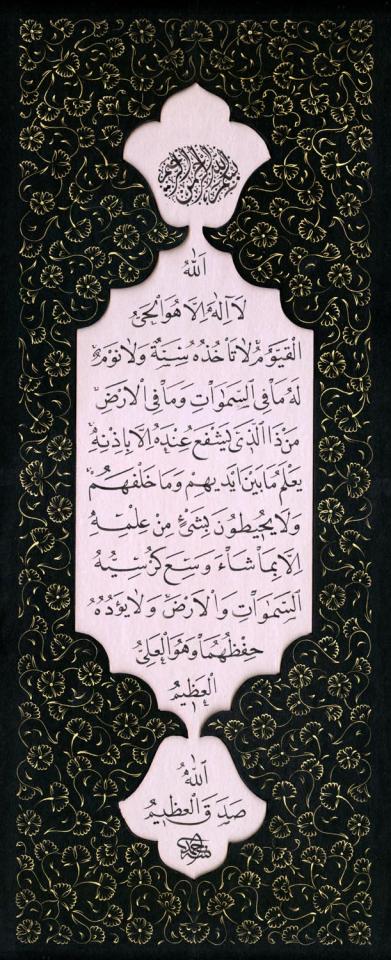 بسم الله الرحمن الرحيم
اَللّٰهُ
لَآ اِلٰهَ اِلَّا هُوَ الْحَىُّ
الْقَيُّومُ لَا تَأْخُذُهُ سِنَةٌ وَلَا نَوْمٌ
لَهُ مَا فِى السَّمٰوَاتِ وَمَا فِى الْاَرْضِ
مَنْ ذَا الَّذٖى يَشْفَعُ عِنْدَهُ اِلَّا بِاِذْنِهٖ
يَعْلَمُ مَا بَيْنَ اَيْدٖيهِمْ وَمَا خَلْفَهُمْ
وَلَا يُحٖيطُونَ بِشَىْءٍ مِنْ عِلْمِهٖ
اِلَّا بِمَا شَاءَ وَسِعَ كُرْسِيُّهُ
السَّمٰوَاتِ وَالْاَرْضَ وَلَا يَؤُدُهُ
حِفْظُهُمَا وَهُوَ الْعَلِىُّ
الْعَظٖيمُ
اَللّٰهُ
صَدَقَ الْعَظٖيمُ